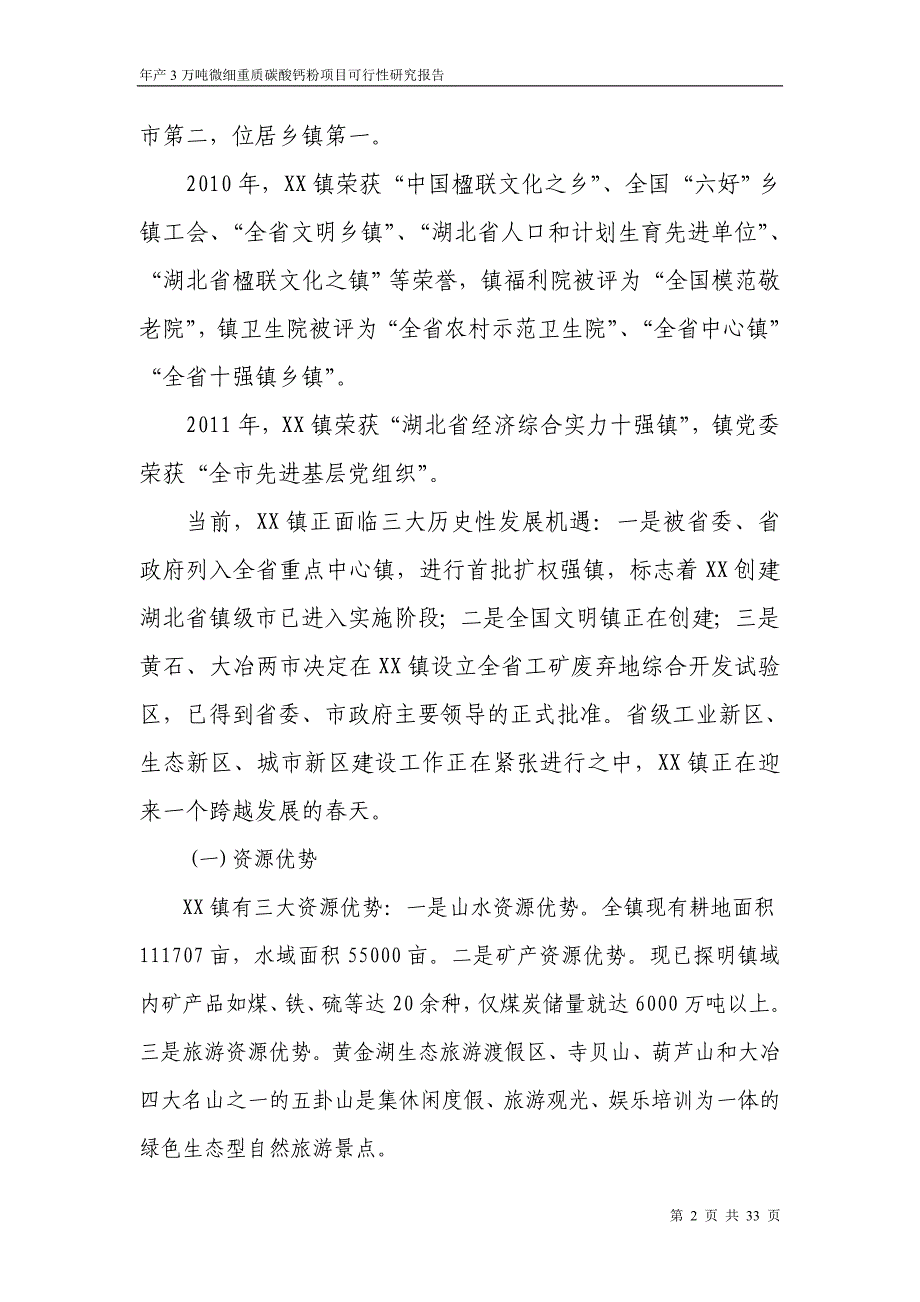 年产 3 万吨微细重质碳酸钙粉项目可行性研究报告
市第二，位居乡镇第一。
2010 年，XX 镇荣获“中国楹联文化之乡”、全国“六好”乡
镇工会、“全省文明乡镇”、“湖北省人口和计划生育先进单位”、
“湖北省楹联文化之镇”等荣誉，镇福利院被评为“全国模范敬
老院”，镇卫生院被评为“全省农村示范卫生院”、“全省中心镇”
“全省十强镇乡镇”。
2011 年，XX 镇荣获“湖北省经济综合实力十强镇”，镇党委
荣获“全市先进基层党组织”。
当前，XX 镇正面临三大历史性发展机遇：一是被省委、省
政府列入全省重点中心镇，进行首批扩权强镇，标志着 XX 创建
湖北省镇级市已进入实施阶段；二是全国文明镇正在创建；三是
黄石、大冶两市决定在 XX 镇设立全省工矿废弃地综合开发试验
区，已得到省委、市政府主要领导的正式批准。省级工业新区、
生态新区、城市新区建设工作正在紧张进行之中，XX 镇正在迎
来一个跨越发展的春天。
(一)资源优势
XX 镇有三大资源优势：一是山水资源优势。全镇现有耕地面积
111707 亩，水域面积 55000 亩。二是矿产资源优势。现已探明镇域
内矿产品如煤、铁、硫等达 20 余种，仅煤炭储量就达 6000 万吨以上。
三是旅游资源优势。黄金湖生态旅游渡假区、寺贝山、葫芦山和大冶
四大名山之一的五卦山是集休闲度假、旅游观光、娱乐培训为一体的
绿色生态型自然旅游景点。
第 2 页 共 33 页